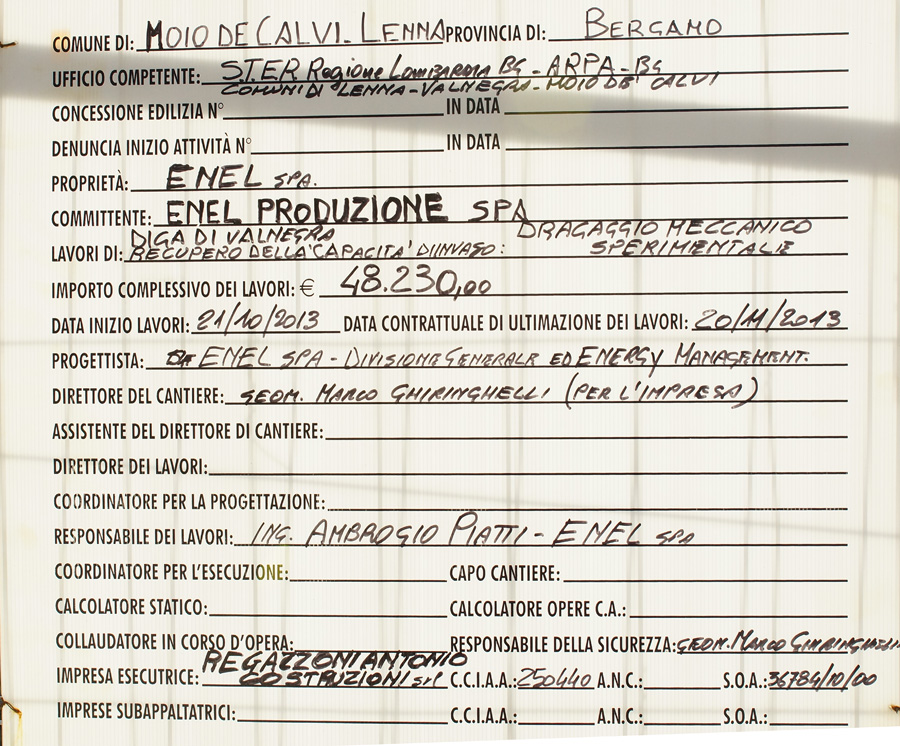 COMUNE DI: MOIO DE CALVI. LENNA PROVINCIA DI: BERGAMO
UFFICIO COMPETENTE: S.T.E.R Regione Lombardia BG - ARPA - BG
COMUNI DI LENNA - VALNEGRA - MOIO DE' CALVI
CONCESSIONE EDILIZIA N° IN DATA
DENUNCIA INIZIO ATTIVITÀ N° IN DATA
PROPRIETÀ: ENEL SPA.
COMMITTENTE: ENEL PRODUZIONE SPA
DIGA DI VALNEGRA DRAGAGGIO MECCANICO
LAVORI DI: RECUPERO DELLA CAPACITA' D'INVASO: SPERIMENTALE
IMPORTO COMPLESSIVO DEI LAVORI: € 48.230,00
DATA INIZIO LAVORI: 21/10/2013 DATA CONTRATTUALE DI ULTIMAZIONE DEI LAVORI: 20/11/2013
PROGETTISTA: ENEL SPA - DIVISIONE GENERALE ED ENERGY MANAGEMENT.
DIRETTORE DEL CANTIERE: GEOM. MARCO GHIRINGHELLI (PER L'IMPRESA)
ASSISTENTE DEL DIRETTORE DI CANTIERE:
DIRETTORE DEI LAVORI:
COORDINATORE PER LA PROGETTAZIONE:
RESPONSABILE DEI LAVORI: ING. AMBROGIO PIATTI - ENEL SPA
COORDINATORE PER L'ESECUZIONE: CAPO CANTIERE:
CALCOLATORE STATICO: CALCOLATORE OPERE C.A.:
COLLAUDATORE IN CORSO D'OPERA: RESPONSABILE DELLA SICUREZZA: GEOM. MARCO GHIRINGHELLI
REGAZZONI ANTONIO
IMPRESA ESECUTRICE: COSTRUZIONI srl C.C.I.A.A.: 250440 A.N.C.: S.O.A.: 36784/10/00
IMPRESE SUBAPPALTATRICI: C.C.I.A.A.: A.N.C.: S.O.A.: